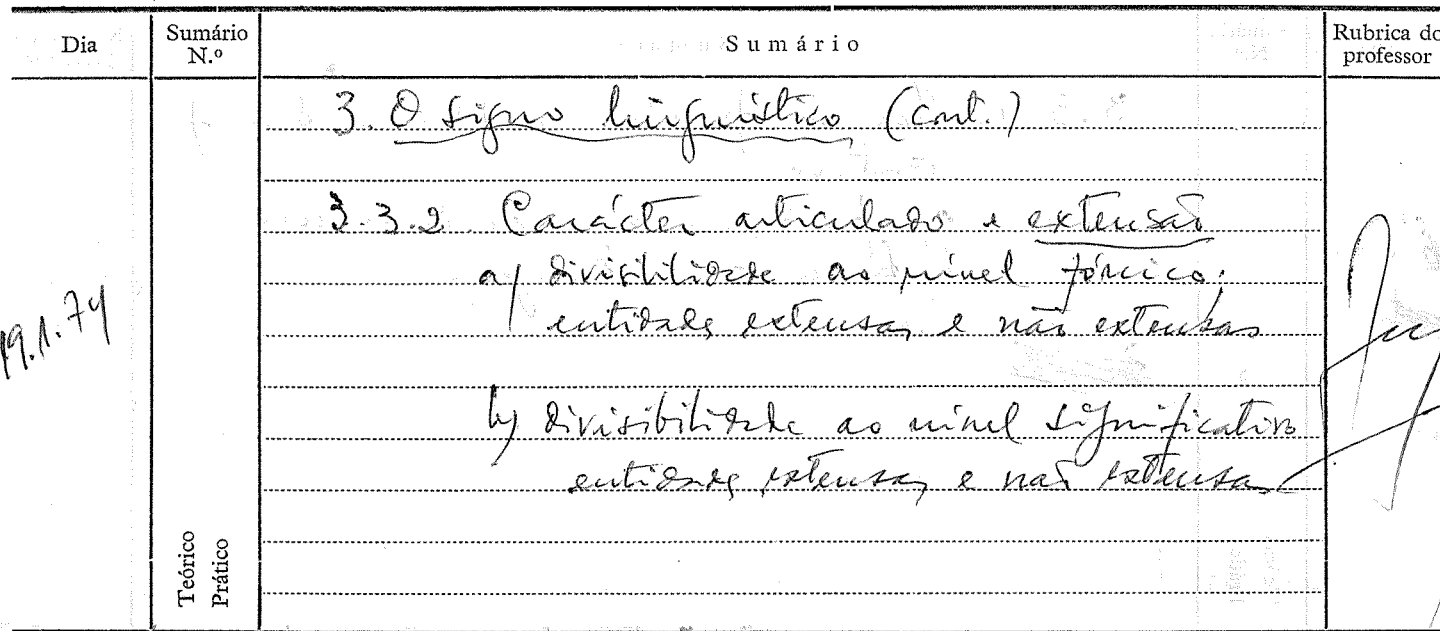 Dia
Sumário
N.º
Sumário
Rubrica do
professor
3. O signo linguístico (cont.)
3.3.2 Carácter articulado e extensão
a) divisibilidade ao nível fónico;
entidades extensas e não extensas
19.1.74
b) divisibilidade ao nível significativo
entidades extensas e não extensas
Teórico
Prático